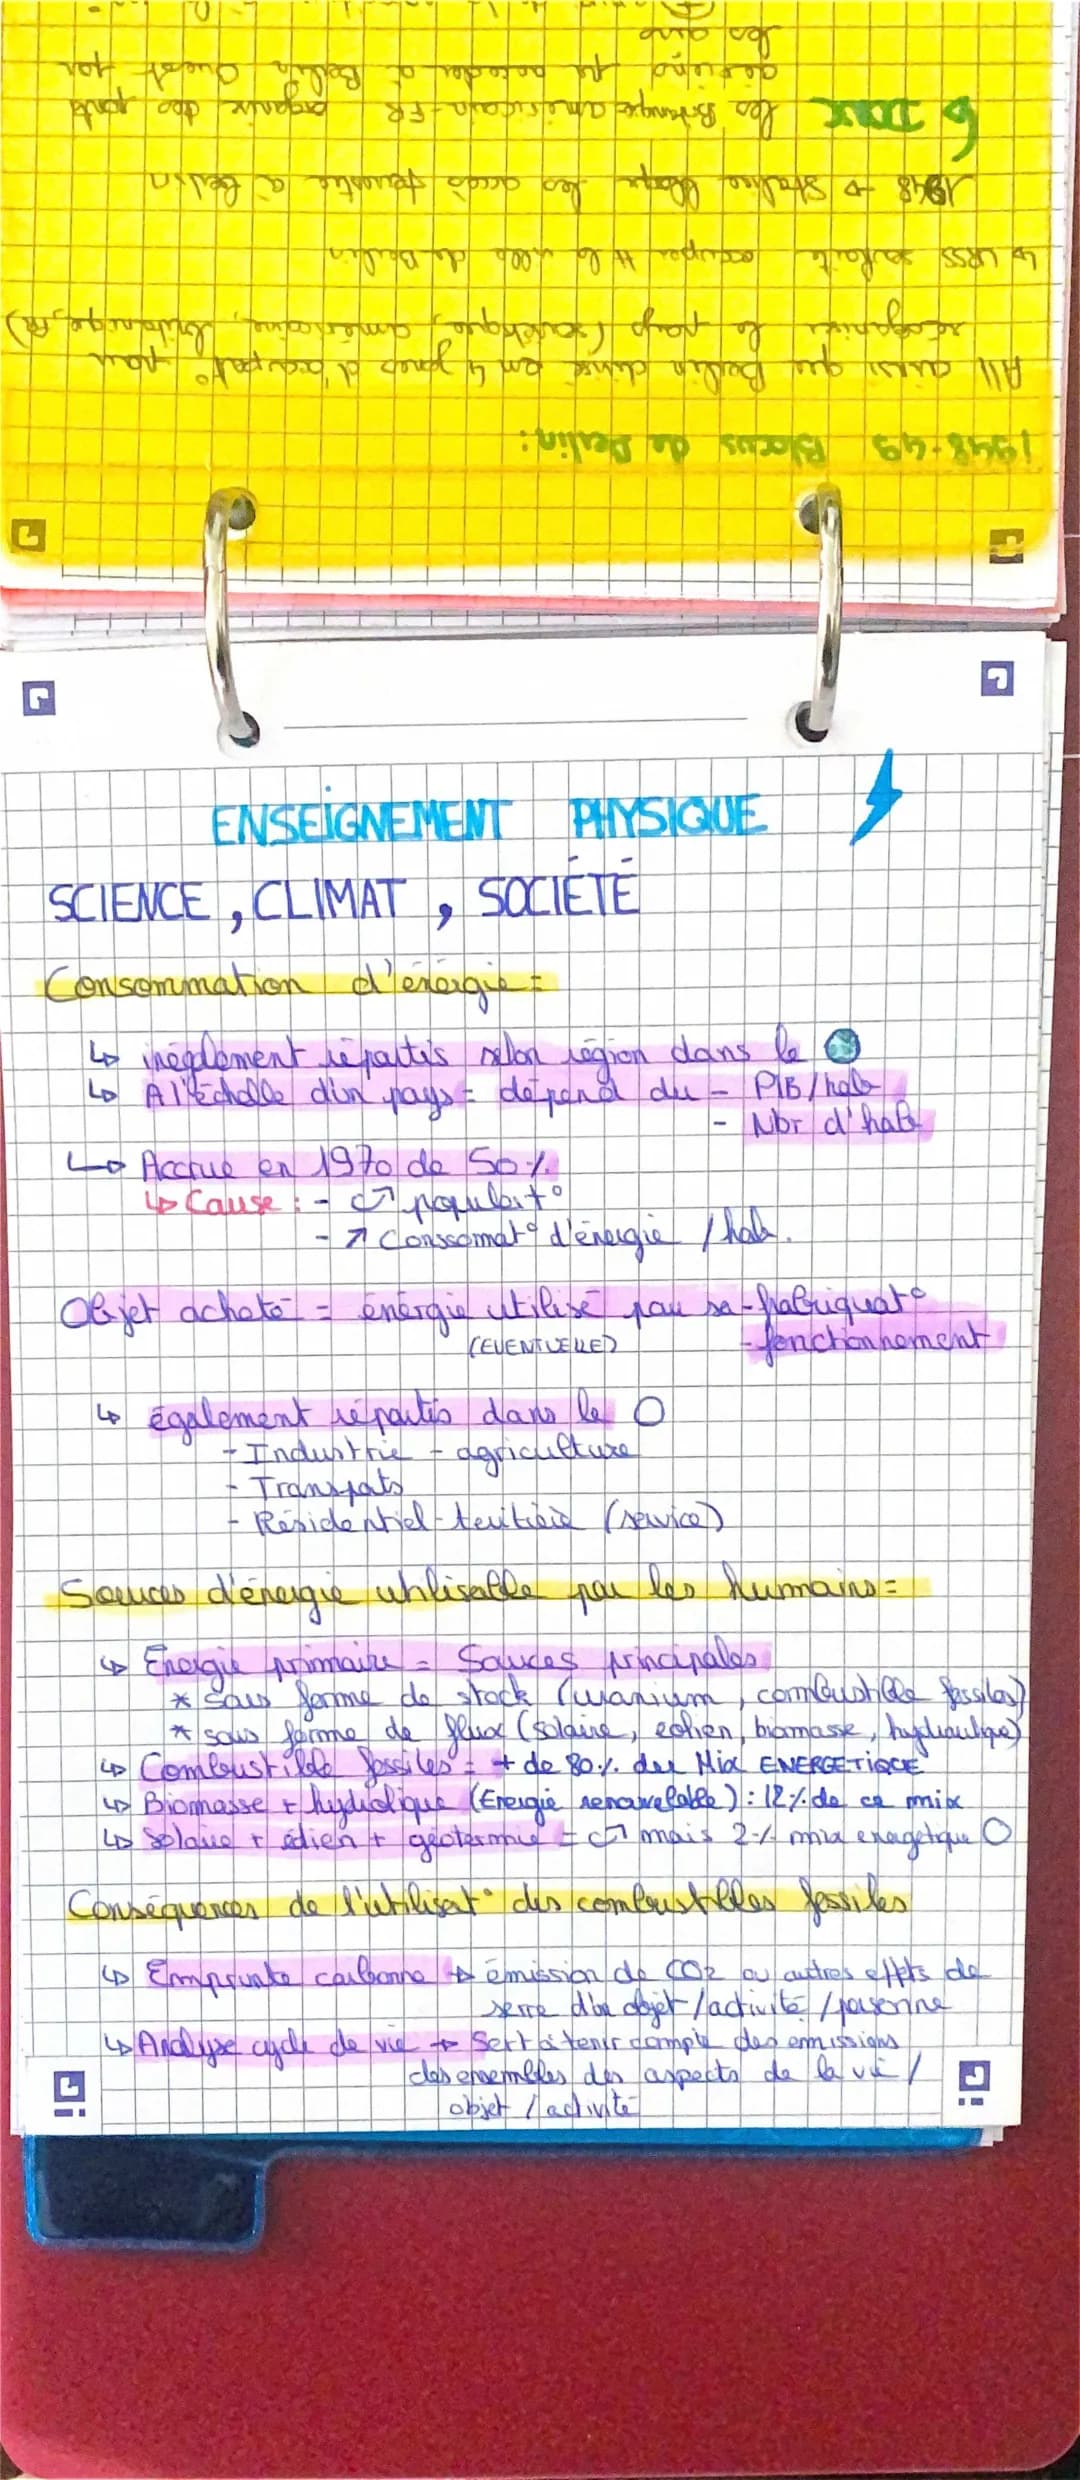 1948-49 Blocus de Berlin :
All ainsi que Berlin divisé en 4 zones d'occupat° pour
réorganiser le pays (soviétique, américaine, britannique, FR)
↳ URSS souhaite occuper tt la ville de Berlin
1948 → Staline bloque les accès terrestre à Berlin
↳ DONC les Britanique-américain-FR organise des ponts
aériens pr acceder à Berlin Ouest par
les airs
ENSEIGNEMENT PHYSIQUE
SCIENCE, CLIMAT, SOCIÉTÉ
Consommation d'énérgie =
↳ inéglement répartis selon région dans le
↳ A l'échelle d'un pays = dépend du - PIB/hab
- Nbr d'hab
↳ Accrue en 1970 de 50%
↳ Cause : - ↗ populait°
- ↗ Conssomat° d'énergie / hab.
Objet acheté = énérgie utilisé pau sa - fabriquat°
(EVENTUELLE) - fonctionnement
↳ également répartis dans le O
- Industrie - agriculture
- Transpots
- Résidentiel-teritière (service)
Souces d'énergie utilisable par les humains =
↳ Energie primaire = Souces principales
* sous forme de stock (uranium, combustible fossiles)
* sous forme de flux (solaire, eolien, biomasse, hydraulique)
↳ Combustible fossiles = + de 80% du Mix ENERGETIQUE
↳ Biomasse + hydrolique (Energie renouvelable) : 12% de ce mix
↳ Solaire + éolien + géotermie = ↗ mais 2% mix energetique O
Conséquences de l'utilisat° des combustibles fossiles
↳ Emprunte carbonne → émission de CO2 ou autres effets de
serre d'un objet / activité / personne
↳ Analyse cycle de vie → Sert à tenir compte des emissions
des ensembles des aspects de la vie /
objet / activité